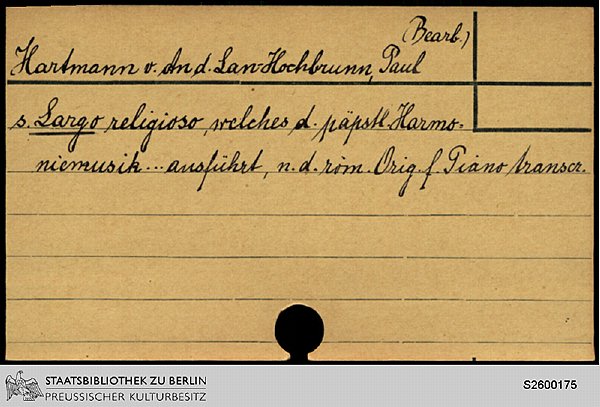 (Bearb.)
Hartmann v. An d. Lan-Hochbrunn, Paul
s. Largo religioso, welches d. päpstl. Harmo-
niemusik... ausführt, n. d. röm. Orig. f. Piano transcr.
STAATSBIBLIOTHEK ZU BERLIN
PREUSSISCHER KULTURBESITZ
S2600175